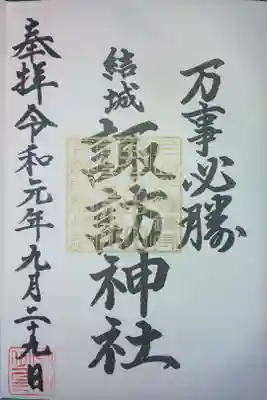 万事必勝
結城
諏訪神社
奉拝令和元年九月二十九日